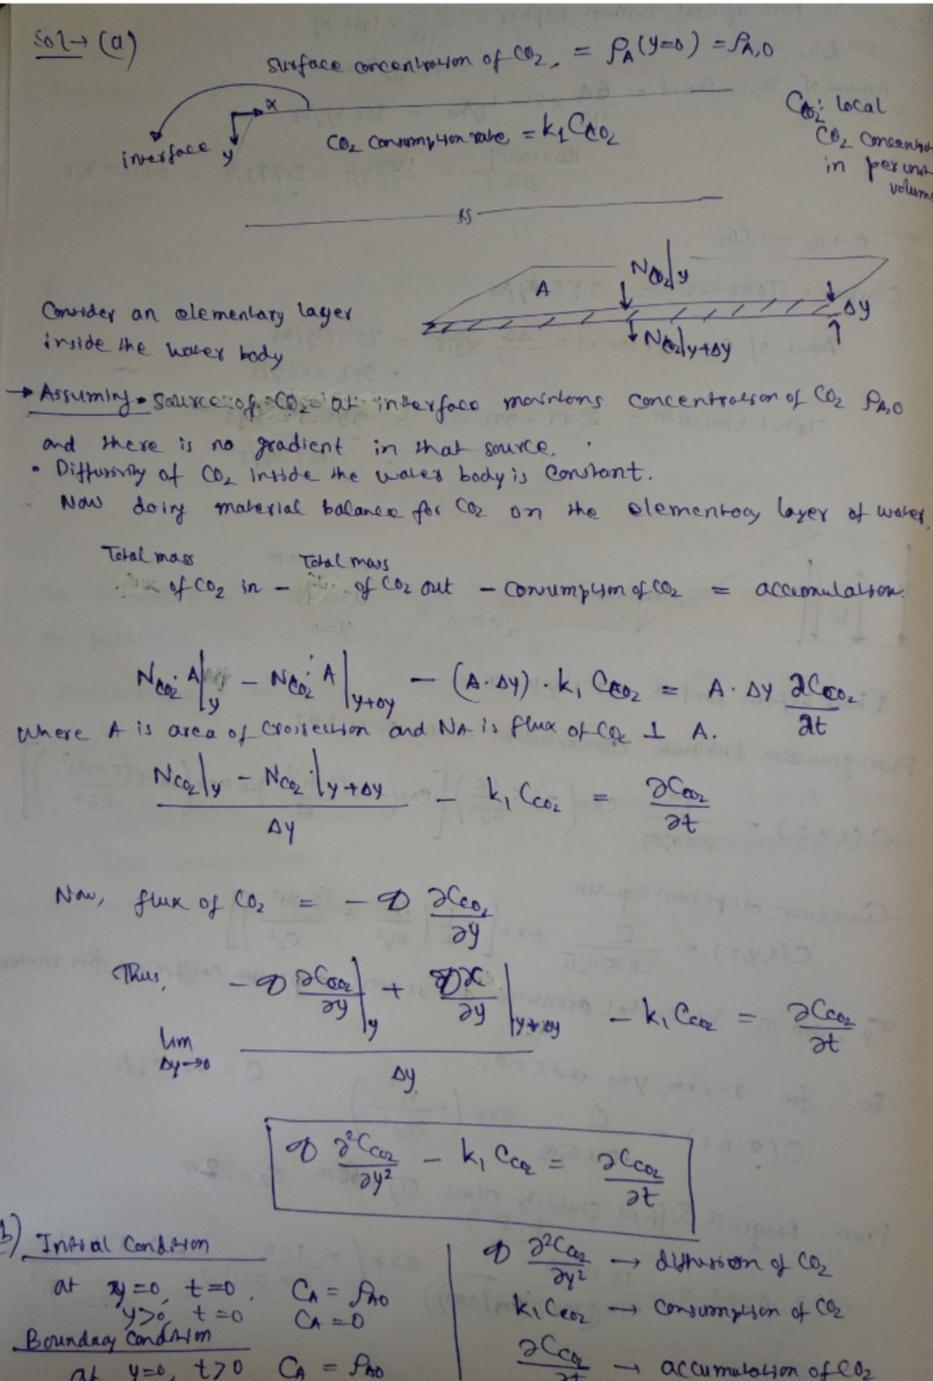 Sol → (a)
surface concentration of CO2, = ρA (y=0) = ρA,0
x
interface y
CO2 consumption rate = k1 CCO2
CCO2: local
CO2 concent
in per un
volum
Consider an elementary layer
inside the water body
A
NCO2|y
Δy
NCO2|y+Δy
→ Assuming • source of CO2 at interface maintains concentration of CO2 ρA,0
and there is no gradient in that source.
• Diffusivity of CO2 inside the water body is constant.
- Now doing material balance for CO2 on the elementary layer of water.
Total mass of CO2 in - Total mass of CO2 out - consumption of CO2 = accumulation.
NCO2·A|y - NCO2·A|y+Δy - (A·Δy)·k1 CCO2 = A·Δy ∂CCO2/∂t
Where A is area of crossection and NA is flux of CO2 ⊥ A.
(NCO2|y - NCO2|y+Δy)/Δy - k1 CCO2 = ∂CCO2/∂t
Now, flux of CO2 = - D ∂CCO2/∂y
Thus, lim Δy→0 (-D ∂CCO2/∂y|y + D∂C/∂y|y+Δy)/Δy - k1 CCO2 = ∂CCO2/∂t
D ∂²CCO2/∂y² - k1 CCO2 = ∂CCO2/∂t
) Initial Condition
at y=0, t=0, CA = ρA0
y>0, t=0 CA = 0
Boundary Condition
at y=0, t>0 CA = ρA0
D ∂²CCO2/∂y² → diffusion of CO2
k1 CCO2 → consumption of CO2
∂CCO2/∂t → accumulation of CO2